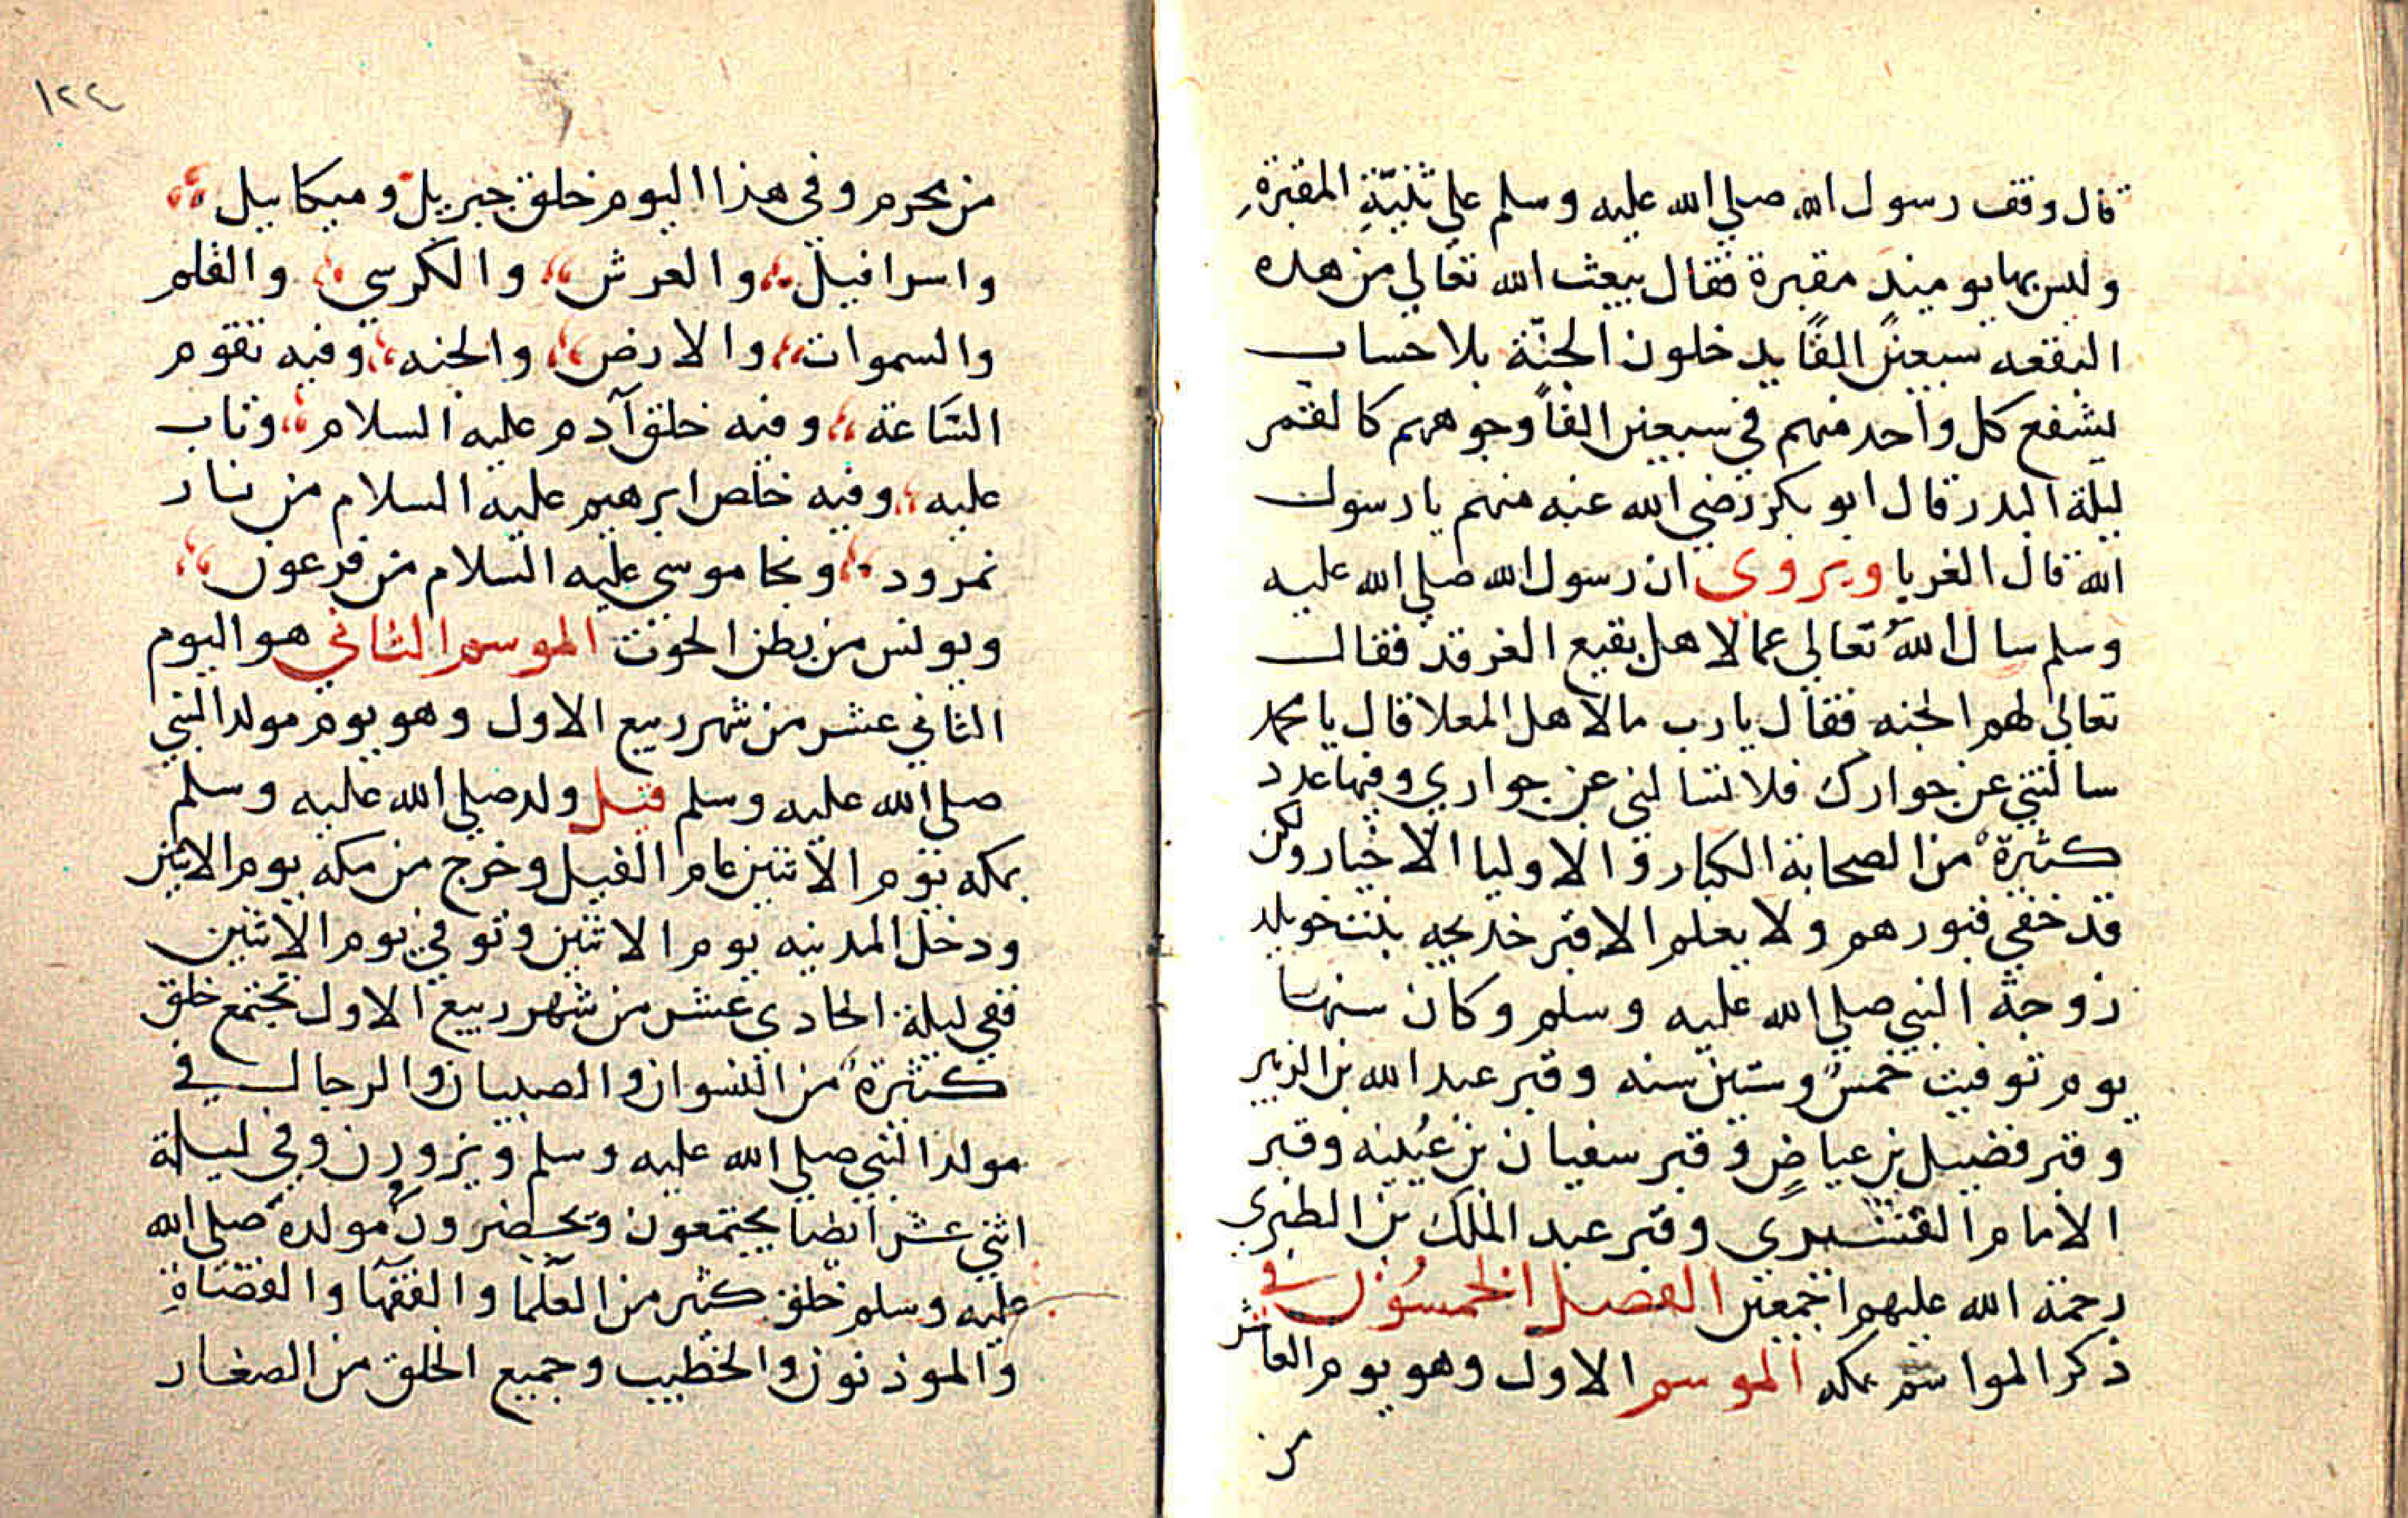 قال وقف رسول الله صلي الله عليه وسلم علي ثنيّةِ المقبرةِ
وليس بها يوميذ مقبرة فقال يبعث الله تعالي من هذه
البقعه سبعين الفًا يدخلون الجنّة بلا حساب
يشفع كل واحد منهم في سبعين الفاً وجوههم كالقمر
ليلة البدر قال ابو بكر رضي الله عنه منهم يا رسول
الله قال الغربا ويروى ان رسول الله صلي الله عليه
وسلم سال اللهَ تعالي عما لاهل بقيع الغرقد فقال
تعالي لهم الجنه فقال يارب ما لاهل المعلا قال يا محمد
سالتني عن جوارك فلا تسالني عن جواري وفيها عدد
كثيرة من الصحابة الكبار والاوليا الاخيار ولكن
قد خفي قبورهم ولا يعلم الا قبر خديجه بنت خويلد
زوجة النبي صلي الله عليه وسلم وكان سنها
يوم توفيت خمس وستين سنه وقبر عبد الله بن الزبير
وقبر فضيل بن عياضٍ وقبر سفيان بن عُيينه وقبر
الامام القشيري وقبر عبد الملك بن الطبري
رحمة الله عليهم اجمعين الفصل الخمسُون في
ذكر المواسم بمكه الموسم الاول وهو يوم العاشر
من
١٢٤
من محرم وفي هذا اليوم خلق جبريل وميكاييل
واسرافيل والعرش والكرسي والقلم
والسموات والارض والجنه وفيه تقوم
السَّاعة وفيه خلق آدم عليه السلام وتاب
عليه وفيه خلص ابرهيم عليه السلام من نار
نمرود ونجا موسي عليه السلام من فرعون
ويونس من بطن الحوت الموسم الثاني هو اليوم
الثاني عشر من شهر ربيع الاول وهو يوم مولد النبي
صلي الله عليه وسلم قيل ولد صلي الله عليه وسلم
بمكه يوم الاثنين عام الفيل وخرج من مكه يوم الاثنين
ودخل المدينه يوم الاثنين وتوفي يوم الاثنين
ففي ليلة الحادي عشر من شهر ربيع الاول تجتمع خلق
كثيرة من النسوان والصبيان والرجال في
مولد النبي صلي الله عليه وسلم ويزورون وفي ليلة
اثني عشر ايضا يجتمعون ويحضرون مولده صلي الله
عليه وسلم خلق كثير من العلما والفقها والقضاةِ
والموذنون والخطيب وجميع الخلق من الصغار